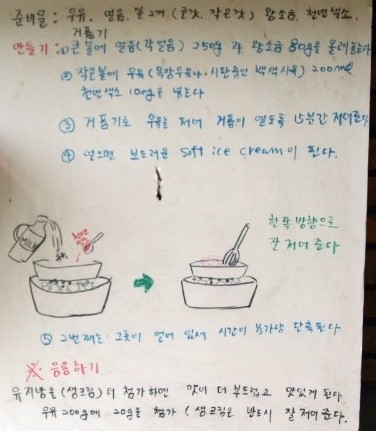 준비물 : 우유, 얼음, 볼2개 (큰것, 작은것) 왕소금, 천연색소,
거품기
만들기 : ① 큰볼에 얼음(각얼음) 250g 과 왕소금 80g을 올려놓는다
② 작은볼에 우유 (목장우유나 시판중인 백색시유) 200ml
천연색소 10g을 넣는다
③ 거품기로 우유를 저어 거품이 일도록 15분간 저어준다
④ 얼으면 보드러운 soft ice cream이 된다.
MILK
한쪽 방향으로
잘 저어 준다
⑤ 2번째는 그릇이 얼어 있어 시간이 단축된다
※ 응용하기
유지방을 (생크림) 더 첨가하면 맛이 더 부드럽고 맛있게 된다
우유 200g에 20g을 첨가 (생크림은 반드시 잘 저어준다.